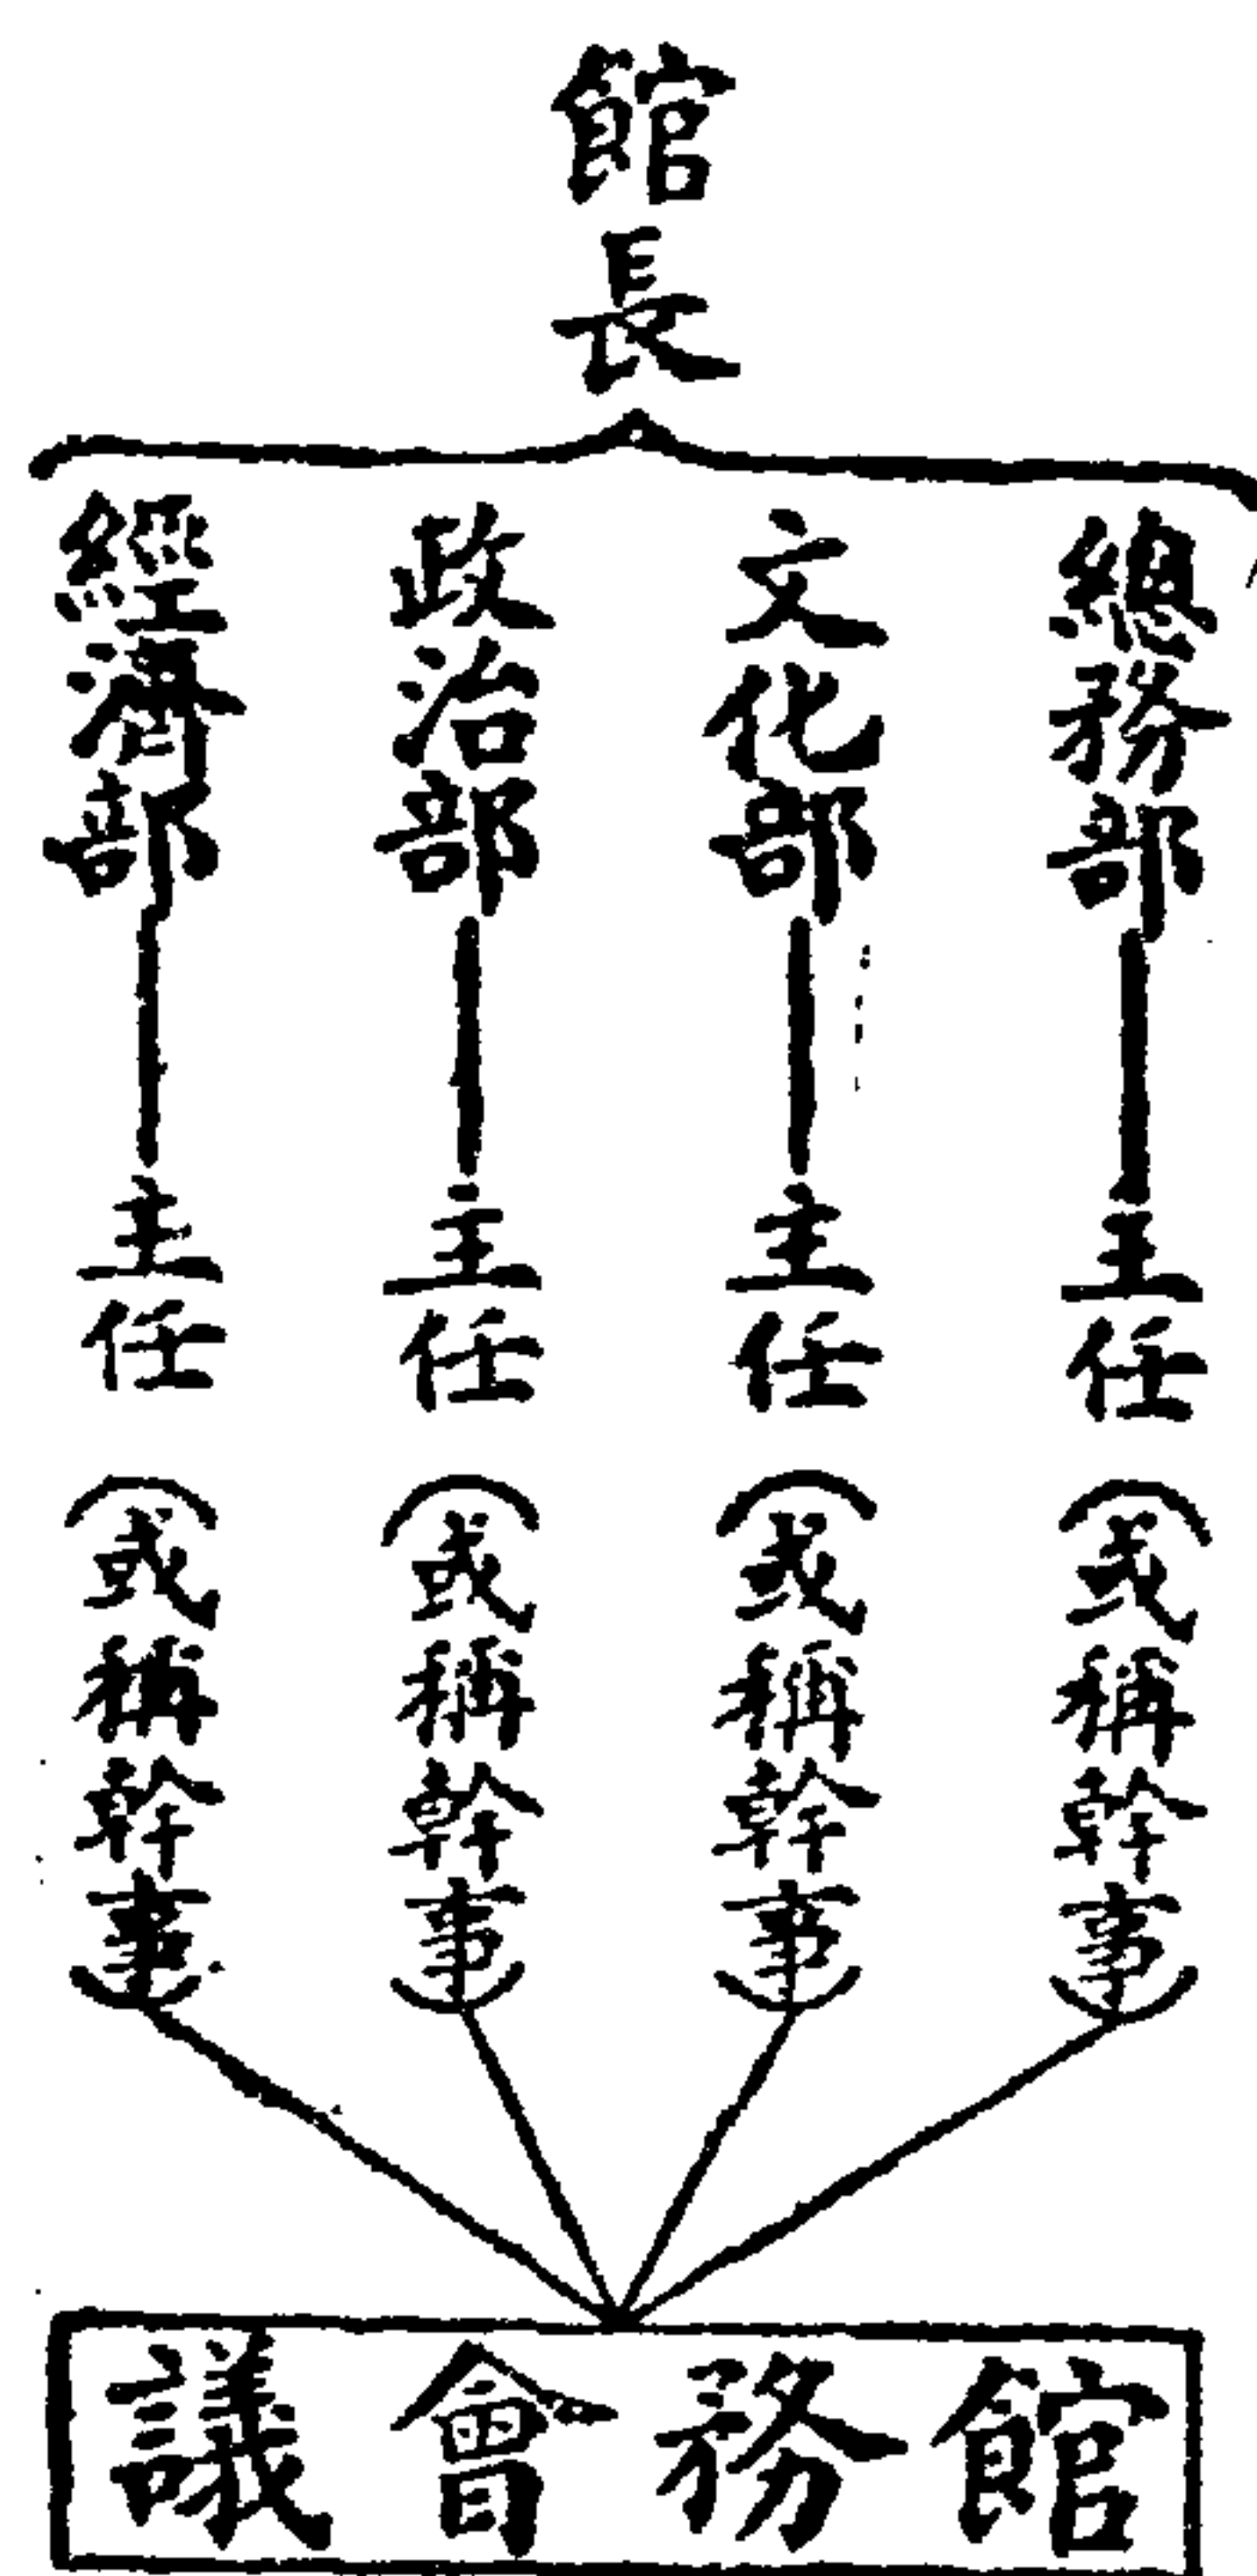 館長
總務部
主任
(或稱幹事)
文化部
主任
(或稱幹事)
政治部
主任
(或稱幹事)
經濟部
主任
(或稱幹事)
館務會議